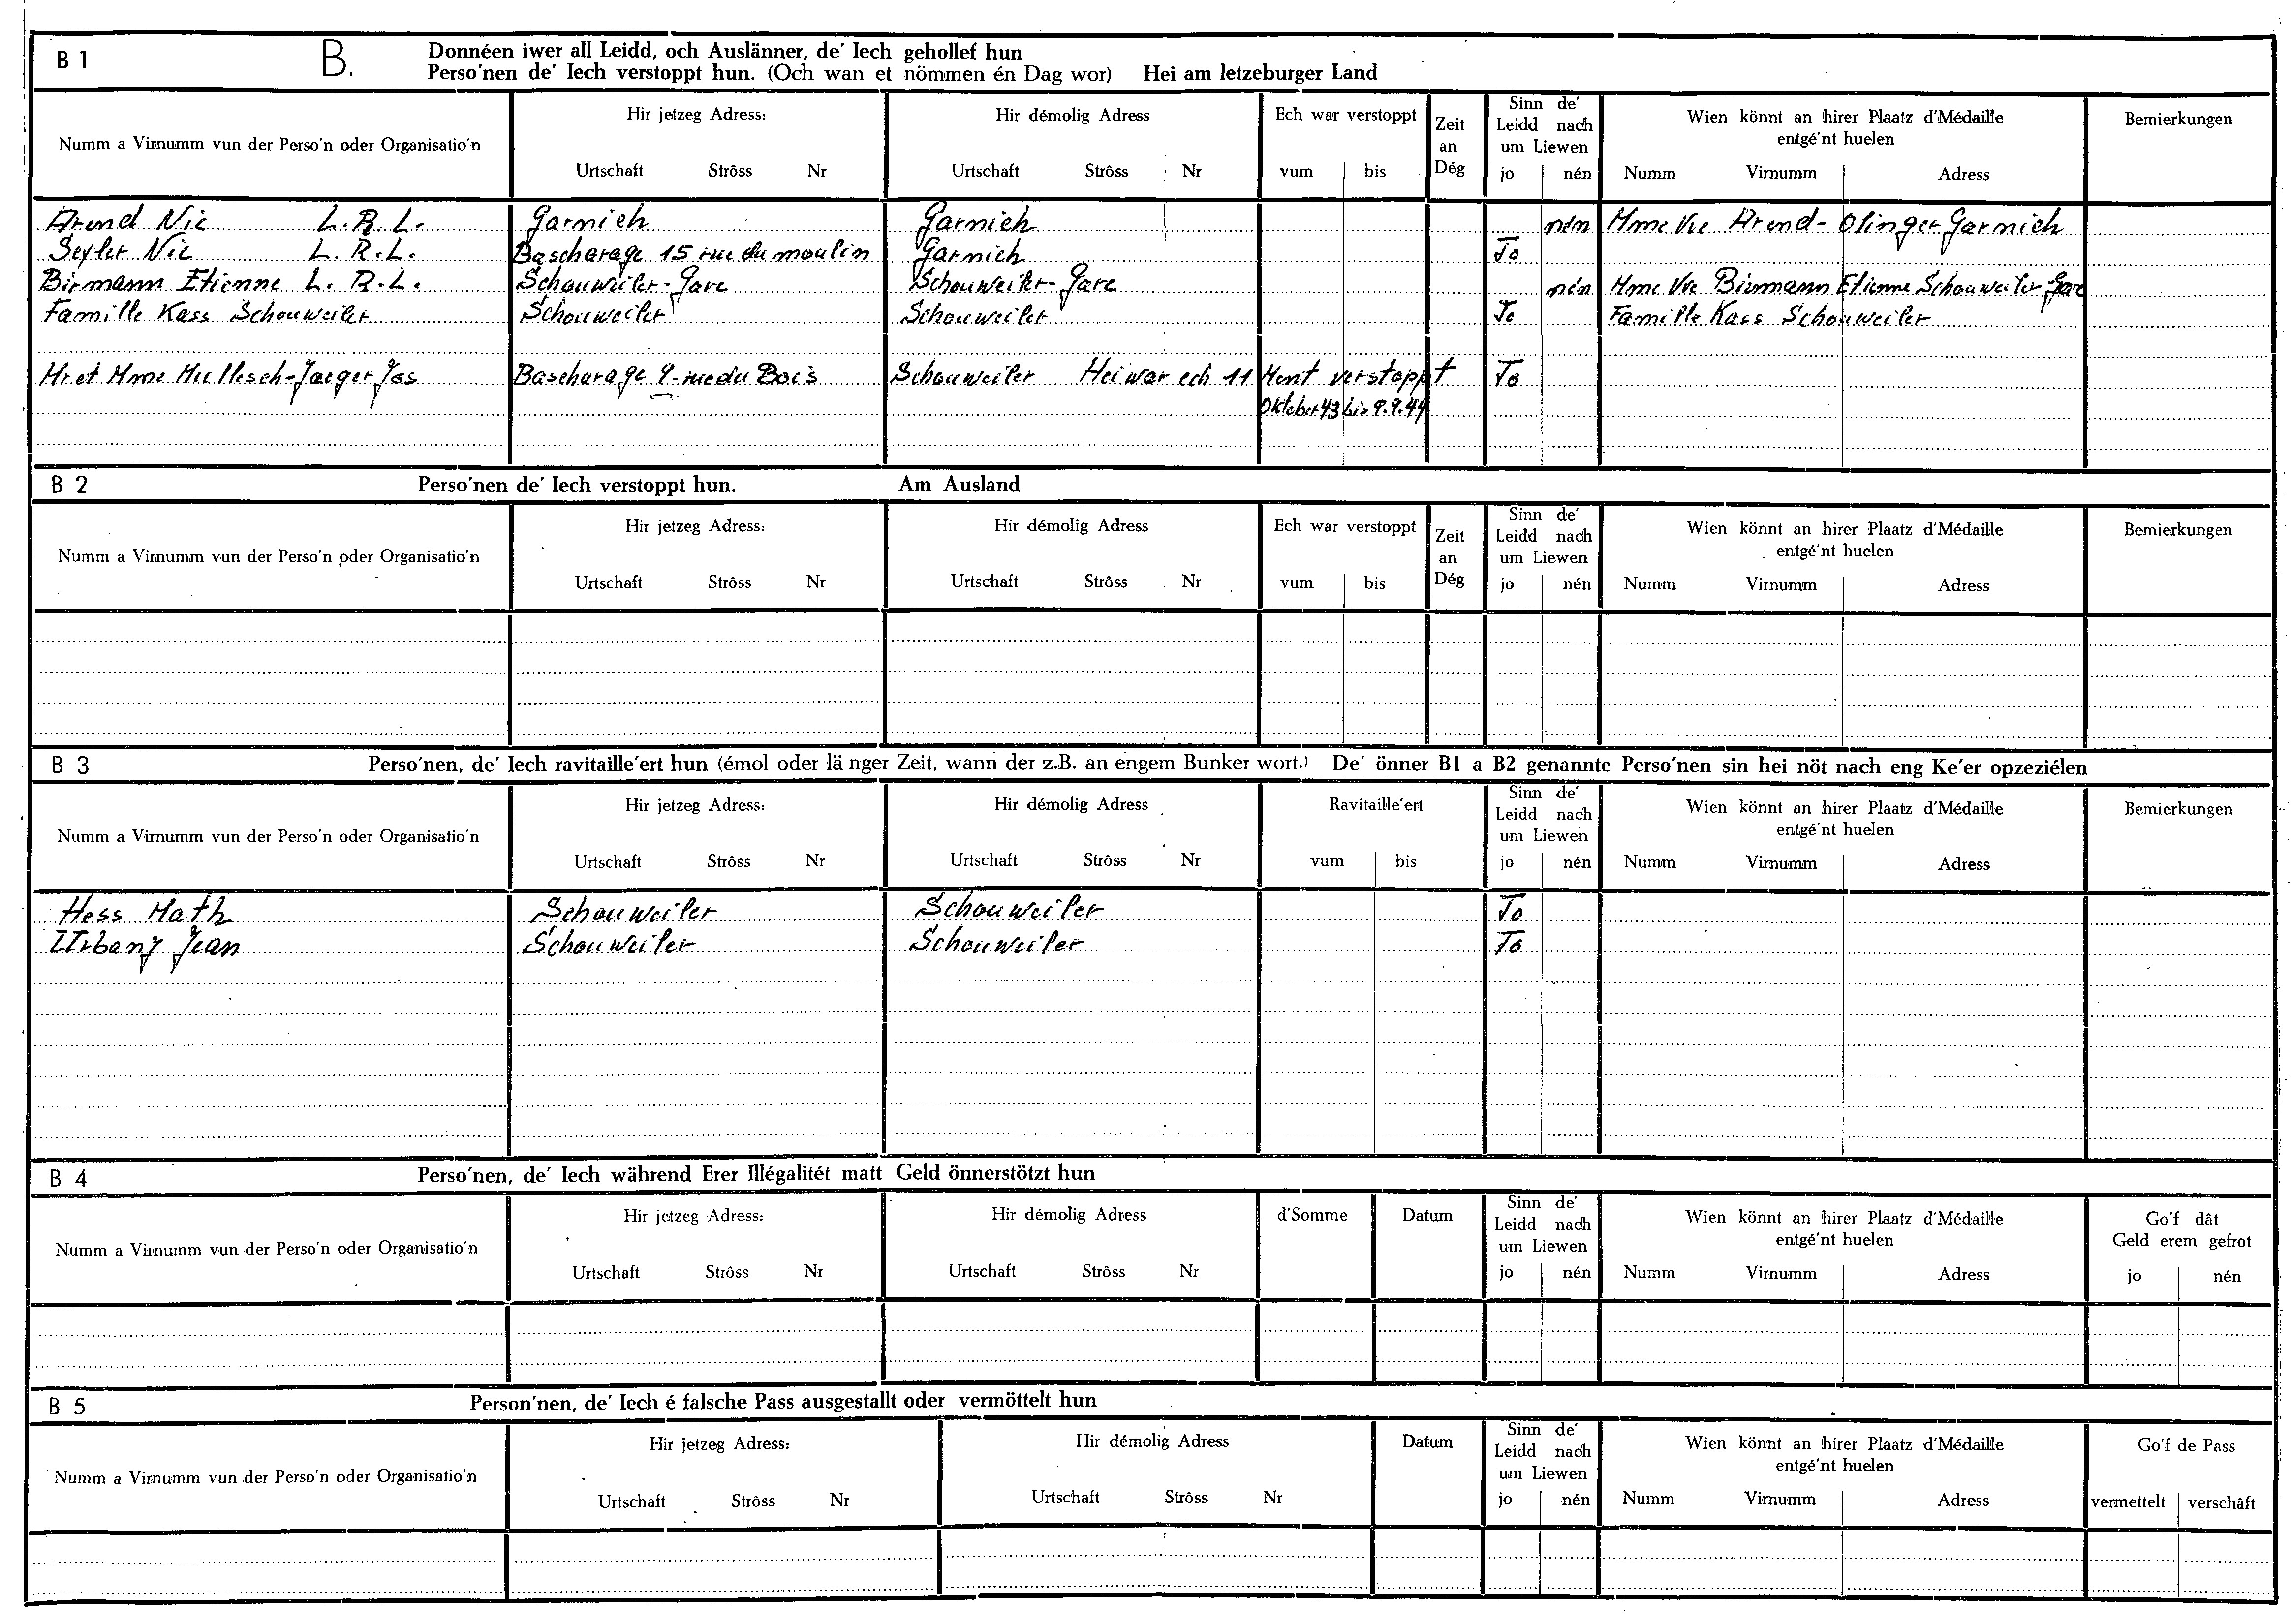 B 1 B. Donnéen iwer all Leidd, och Auslänner, de' Iech gehollef hun
Perso'nen de' Iech verstoppt hun. (Och wan et nömmen én Dag wor) Hei am letzeburger Land
Numm a Virnumm vun der Perso'n oder Organisatio'n
Hir jetzeg Adress:
Urtschaft Strôss Nr
Hir démolig Adress
Urtschaft Strôss Nr
Ech war verstoppt
vum bis
Zeit
an
Dég
Sinn de'
Leidd nach
um Liewen
jo nén
Wien könnt an hirer Plaatz d'Médaille
entgé'nt huelen
Numm Virnumm Adress
Bemierkungen
Arend Nic L.R.L. Garnich Garnich nén Mme Vve Arend-Olinger Garnich
Seyler Nic L.R.L. Bascharage 15 rue du moulin Garnich Jo
Birmann Etienne L.R.L. Schouweiler-Gare Schouweiler-Gare nén Mme Vve Birmann Etienne Schouweiler-Gare
Famille Kass Schouweiler Schouweiler Schouweiler Jo Famille Kass Schouweiler
Mr et Mme Mullesch-Jaeger Jos Bascharage 9 rue du Bois Schouweiler Hei war ech 11 Mont verstoppt Jo
Oktober 43 bis 9.9.44
B 2 Perso'nen de' Iech verstoppt hun. Am Ausland
Numm a Virnumm vun der Perso'n oder Organisatio'n
Hir jetzeg Adress:
Urtschaft Strôss Nr
Hir démolig Adress
Urtschaft Strôss Nr
Ech war verstoppt
vum bis
Zeit
an
Dég
Sinn de'
Leidd nach
um Liewen
jo nén
Wien könnt an hirer Plaatz d'Médaille
entgé'nt huelen
Numm Virnumm Adress
Bemierkungen
B 3 Perso'nen, de' Iech ravitaille'ert hun (émol oder länger Zeit, wann der z.B. an engem Bunker wort.) De' önner B1 a B2 genannte Perso'nen sin hei nöt nach eng Ke'er opzeziélen
Numm a Virnumm vun der Perso'n oder Organisatio'n
Hir jetzeg Adress:
Urtschaft Strôss Nr
Hir démolig Adress
Urtschaft Strôss Nr
Ravitaille'ert
vum bis
Sinn de'
Leidd nach
um Liewen
jo nén
Wien könnt an hirer Plaatz d'Médaille
entgé'nt huelen
Numm Virnumm Adress
Bemierkungen
Hess Math Schouweiler Schouweiler Jo
Urbany Jean Schouweiler Schouweiler Jo
B 4 Perso'nen, de' Iech während Erer Illégalitét matt Geld önnerstötzt hun
Numm a Virnumm vun der Perso'n oder Organisatio'n
Hir jetzeg Adress:
Urtschaft Strôss Nr
Hir démolig Adress
Urtschaft Strôss Nr
d'Somme
Datum
Sinn de'
Leidd nach
um Liewen
jo nén
Wien könnt an hirer Plaatz d'Médaille
entgé'nt huelen
Numm Virnumm Adress
Go'f dât
Geld erem gefrot
jo nén
B 5 Person'nen, de' Iech é falsche Pass ausgestallt oder vermöttelt hun
Numm a Virnumm vun der Perso'n oder Organisatio'n
Hir jetzeg Adress:
Urtschaft Strôss Nr
Hir démolig Adress
Urtschaft Strôss Nr
Datum
Sinn de'
Leidd nach
um Liewen
jo nén
Wien könnt an hirer Plaatz d'Médaille
entgé'nt huelen
Numm Virnumm Adress
Go'f de Pass
vermettelt verschâft